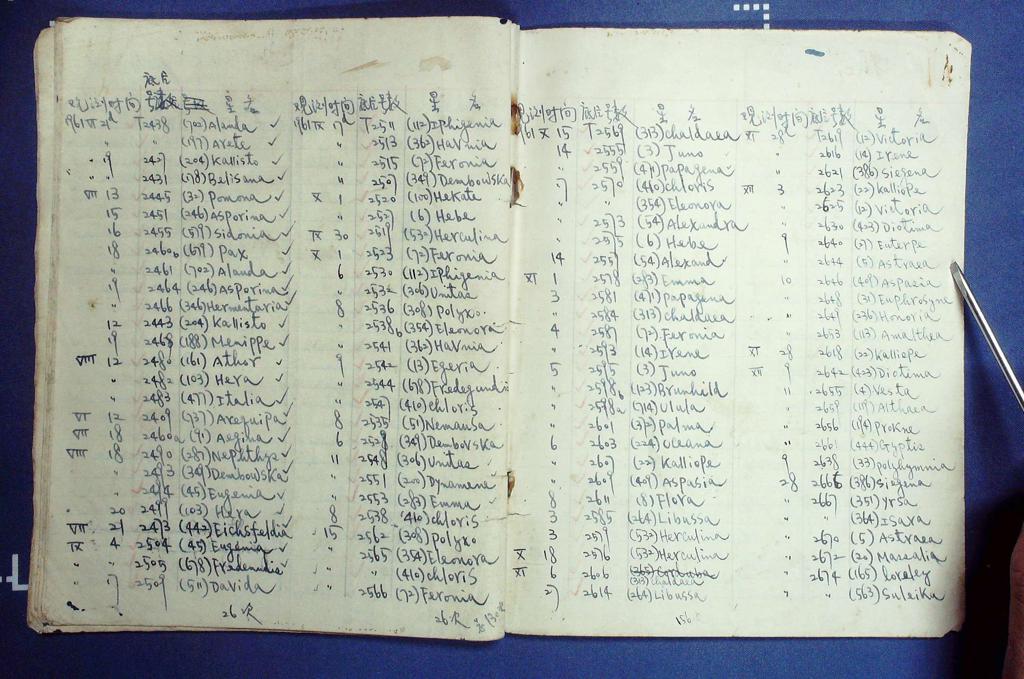 底片
观测时间 号数 星名
1961 VI 21 T2438 (702) Alauda ✓
" " (197) Arete ✓
" 9 2427 (204) Kallisto ✓
" " 2431 (178) Belisana ✓
VIII 13 2445 (32) Pomona ✓
15 2451 (246) Asporina ✓
16 2455 (579) Sidonia ✓
18 2460b (679) Pax ✓
" 2461 (702) Alauda ✓
19 2464 (246) Asporina ✓
" 2466 (346) Hermentaria ✓
12 2443 (204) Kallisto ✓
19 2468 (188) Menippe ✓
VIII 12 2480 (161) Athor ✓
" 2482 (103) Hera ✓
" 2483 (477) Italia ✓
VII 12 2409 (737) Arequipa ✓
VII 18 2460a (91) Aegina ✓
VIII 18 2490 (287) Nephthys ✓
" 2493 (349) Dembowska
" 2494 (45) Eugenia ✓
20 2497 (103) Hera ✓
VIII 21 2473 (442) Eichsfeldia
IX 4 2504 (45) Eugenia ✓
" 2505 (678) Fredegundis
7 2509 (511) Davida ✓
26次
观测时间 底片号数 星名
1961 IX 7 T2511 (112) Iphigenia
" 2513 (362) Havnia
" 2515 (72) Feronia
" 2507 (349) Dembowska
X 1 2520 (100) Hekate
" 2527 (6) Hebe
IX 30 2519 (532) Herculina
X 1 2523 (72) Feronia
6 2530 (112) Iphigenia
" 2532 (306) Unitas
8 2536 (308) Polyxo
" 2538b (354) Eleonora
" 2541 (362) Havnia
9 2542 (13) Egeria
" 2544 (678) Fredegundis
" 2547 (410) Chloris
8 2535 (51) Nemausa
6 2528 (349) Dembowska
11 2548 (306) Unitas
" 2551 (200) Dynamene
" 2553 (283) Emma
8 2538 (410) Chloris
15 2562 (308) Polyxo
" 2565 (354) Eleonora
" " (410) Chloris
2566 (72) Feronia
26次
观测时间 底片号数 星名
1961 X 15 T2569 (313) Chaldaea
14 2555 (3) Juno
" 2559 (471) Papagena
7 2570 (410) Chloris
" (354) Eleonora
" 2573 (54) Alexandra
" 2575 (6) Hebe
14 2557 (54) Alexand
XI 1 2578 (283) Emma
3 2581 (471) Papagena
" 2584 (313) Chaldaea
4 2587 (72) Feronia
" 2593 (14) Irene
5 2595 (3) Juno
" 2598b (123) Brunhild
" 2598a (714) Ulula
" 2601 (372) Palma
6 2603 (224) Oceana
" 2607 (22) Kalliope
" 2609 (409) Aspasia
8 2611 (8) Flora
3 2585 (264) Libussa
3 2579 (532) Herculina
X 18 2576 (532) Herculina
XI 6 2606 (313) Chaldaea
27 2614 (264) Libussa
156
观测时间 底片号数 星名
XI 28 T2619 (12) Victoria
" 2616 (14) Irene
" 2621 (386) Siegena
XII 3 2623 (22) Kalliope
" 2625 (12) Victoria
" 2630 (423) Diotima
9 2640 (27) Euterpe
" 2644 (5) Astraea
10 2646 (409) Aspasia
" 2648 (31) Euphrosyne
" 2649 (236) Honoria
" 2653 (113) Amalthea
XI 28 2618 (22) Kalliope
XII 9 2642 (423) Diotima
11 2655 (4) Vesta
" 2659 (119) Althaea
" 2656 (194) Prokne
" 2661 (444) Gyptis
9 2638 (33) Polyhymnia
28 2665 (386) Siegena
" 2667 (351) Yrsa
" " (364) Isara
" 2670 (5) Astraea
" 2672 (20) Massalia
" 2674 (165) Loreley
" " (563) Suleika